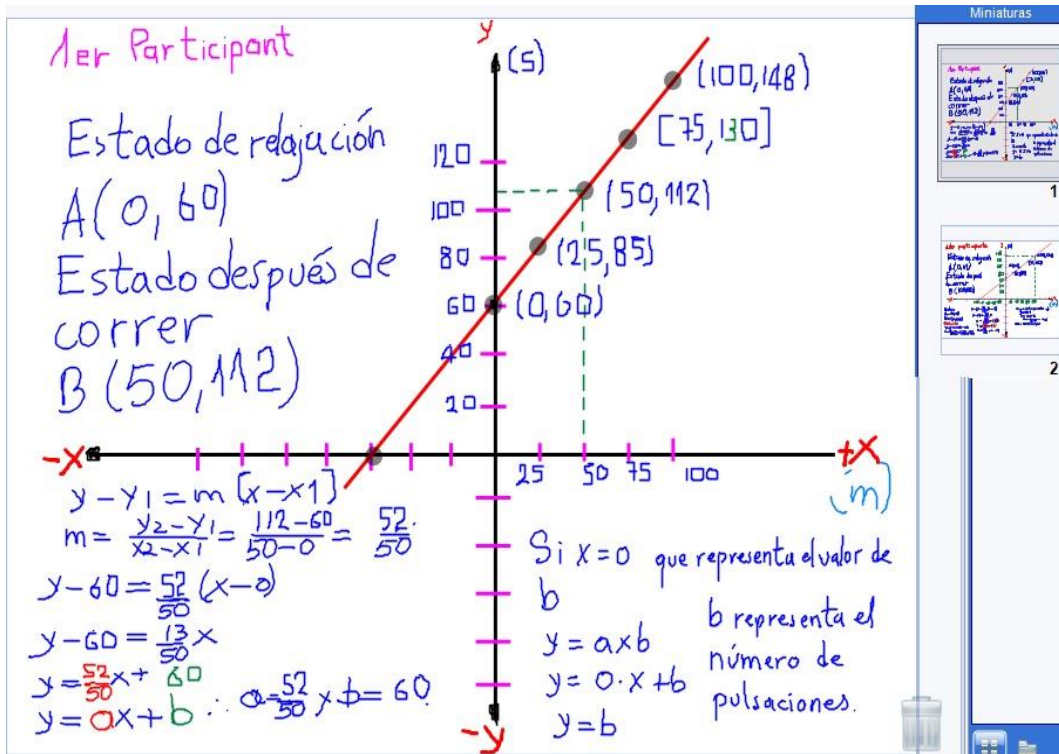 Miniaturas
1er Participant
Estado de relajación
A(0,60)
Estado después de
correr
B(50,112)
y
(S)
(100,148)
[75,130]
(50,112)
(25,85)
(0,60)
120
100
80
60
40
20
-X
+X
(m)
25 50 75 100
-y
y-y1=m[x-x1]
m=\frac{y2-y1}{x2-x1}=\frac{112-60}{50-0}=\frac{52}{50}
y-60=\frac{52}{50}(x-0)
y-60=\frac{13}{50}x
y=\frac{52}{50}x+ 60
y=ax+b ∴ a=\frac{52}{50} y b=60
Si x=0 que representa el valor de
b
y=axb
y=0·x+b
y=b
b representa el
número de
pulsaciones.
1
2